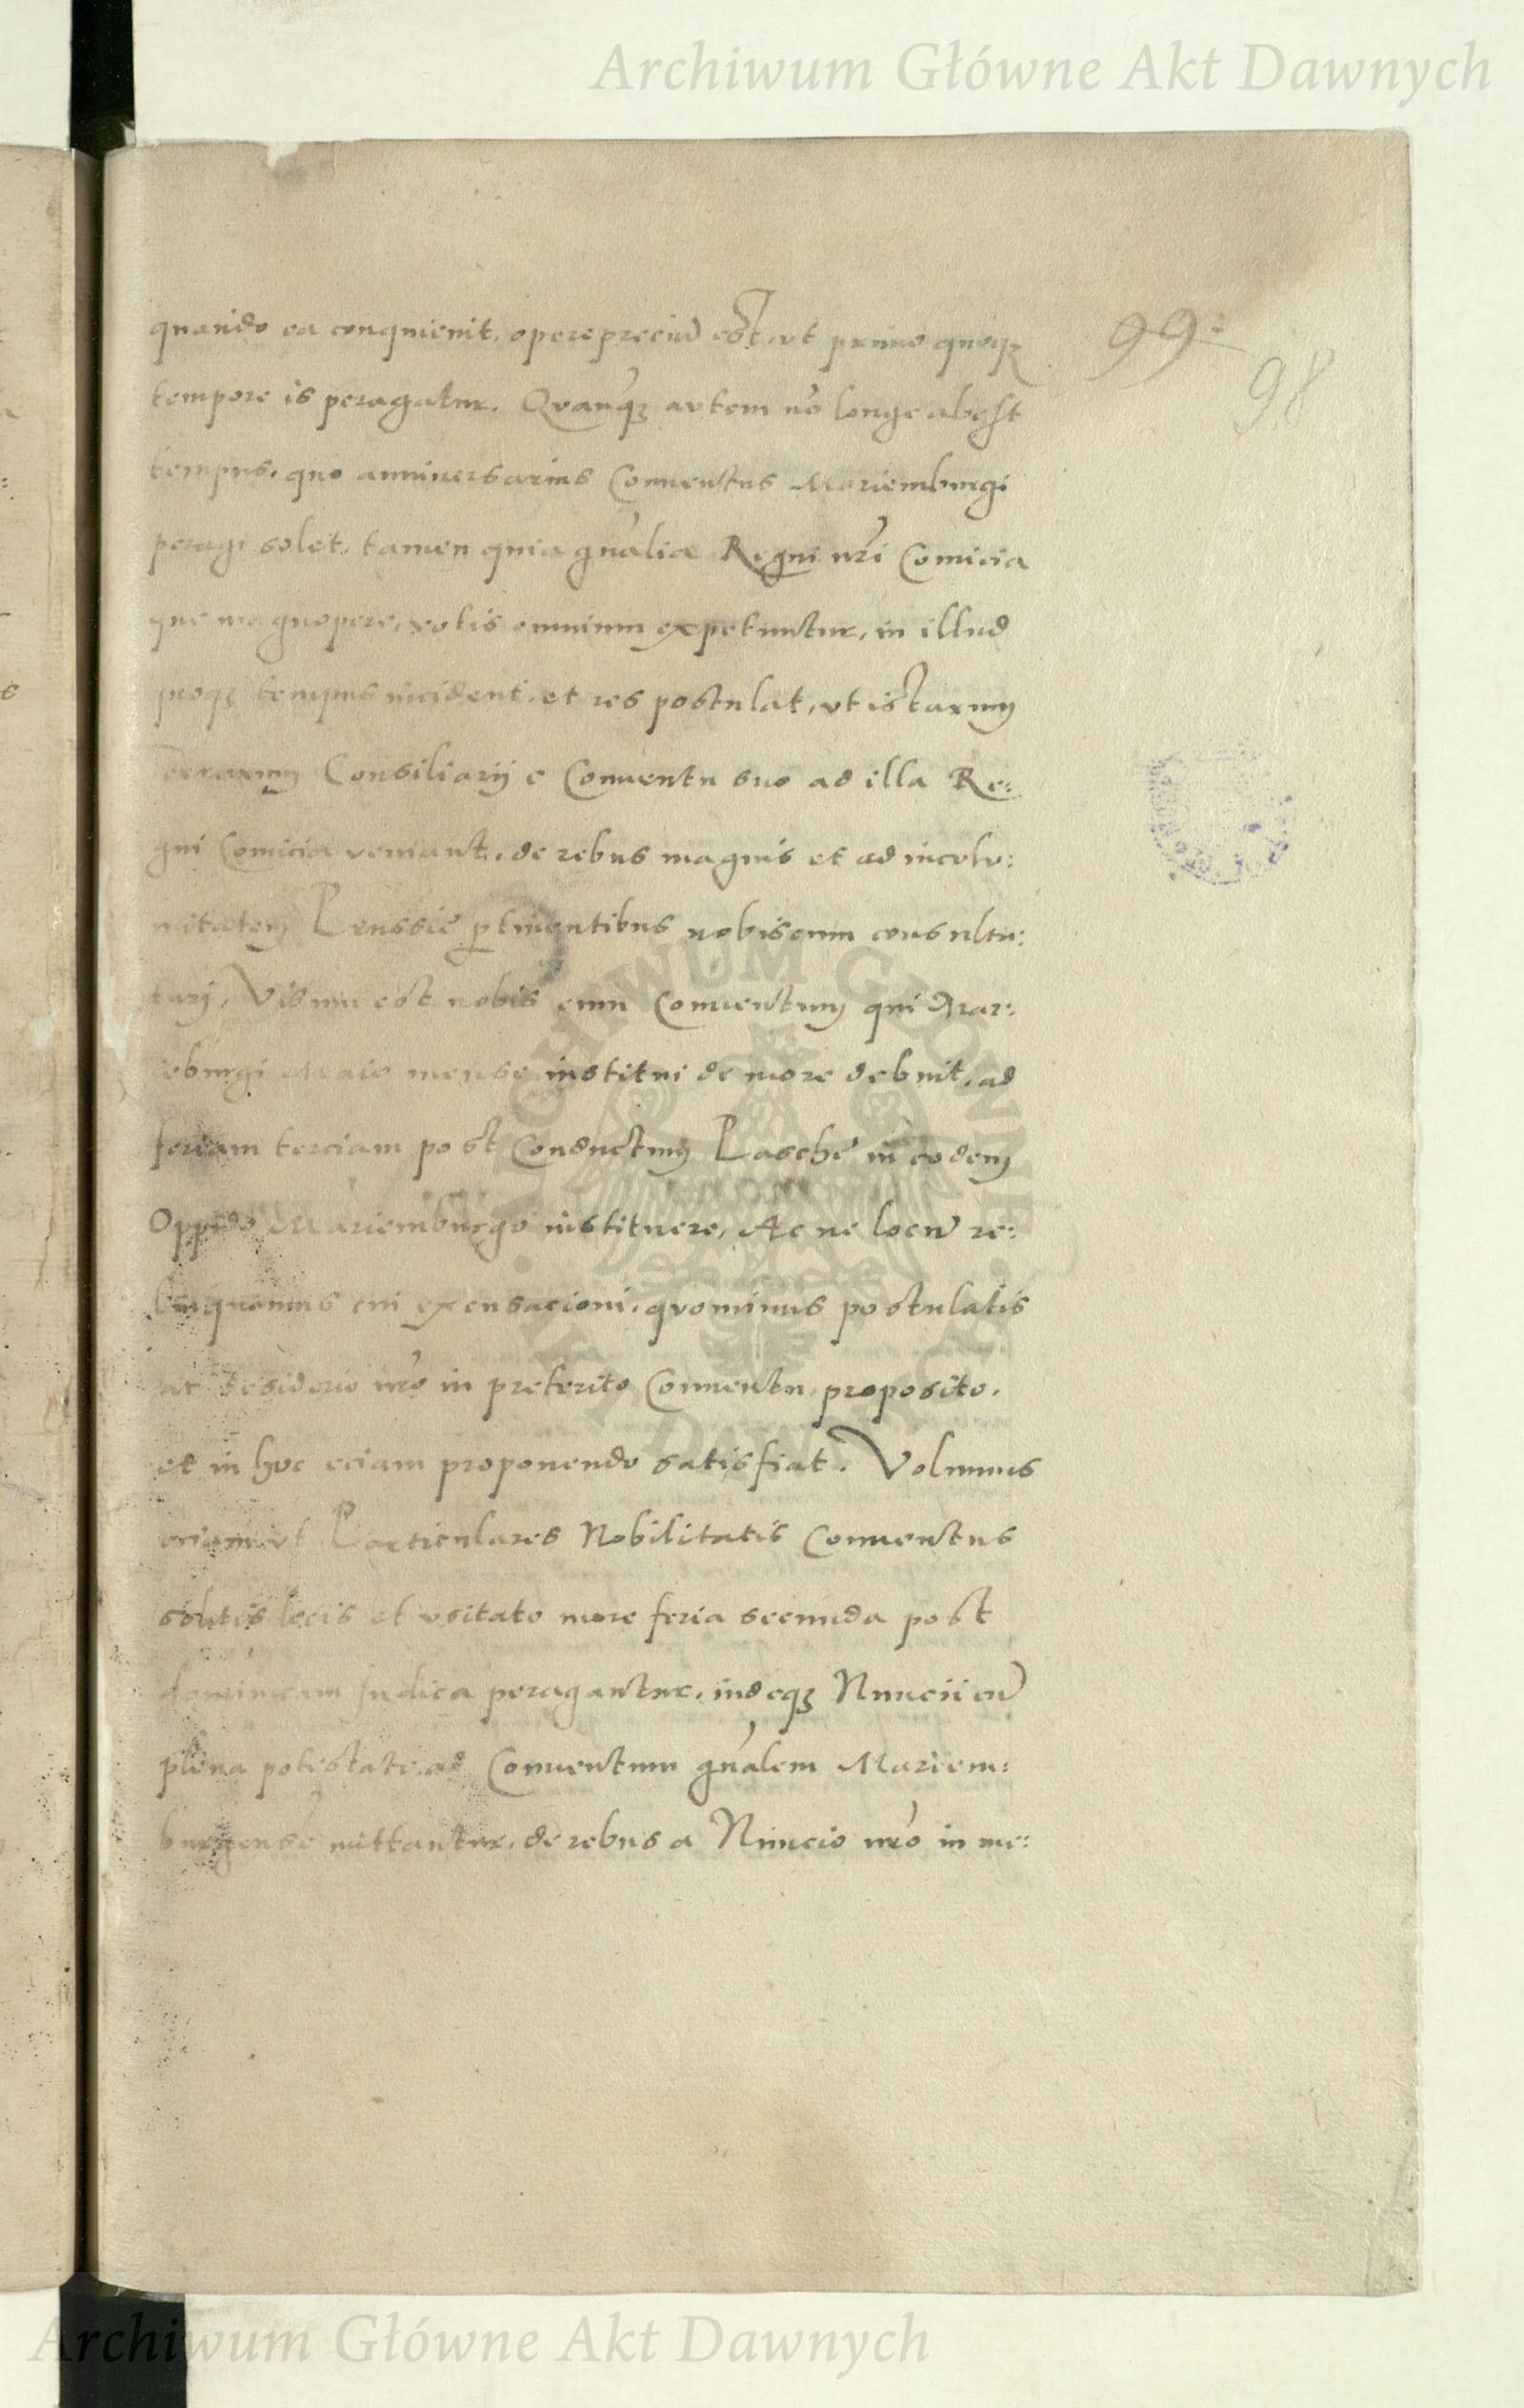 Archiwum Główne Akt Dawnych
99
98
quando ea conquieuit, operepreciū est, ut primo quoqȝ
tempore is peragatur. Quanqȝ autem nō longe abest
tempus, quo anniuersarius Conuentus Mariemburgi
peragi solet, tamen quia gn̄alia Regni nr̄i Comicia
que magnopere votis omnium expetuntur, in illud
quoqȝ tempus incident, et res postulat, ut istarum
terrarum Consiliarij e Conuentu suo ad illa Re:
gni Comicia veniant, de rebus magnis et ad incolu:
mitatem Prussie ꝑtinentibus nobiscum consultu:
turi, Visum est nobis eum Conuentum qui Mar:
iēburgi Maio mense institui de more debuit, ad
feriam terciam post Conductum Pasche in eodem
Oppido Mariemburgo instituere, Ac ne locū re:
linquamus cui excusacioni, quominus postulatis
ac desiderio nr̄o in preterito Conuentu proposito,
et in hoc eciam proponendo satisfiat. Volumus
eciam ut Particulares Nobilitatis Conuentus
solitis locis et usitato more feria secunda post
dominicam Judica peragantur, indeqȝ Nuncii cū
plena potestate ad Conuentum gn̄alem Mariem:
burgensē mittantur, de rebus a Nuncio nr̄o in me:
ARCHIWUM GŁÓWNE AKT DAWNYCH
Archiwum Główne Akt Dawnych